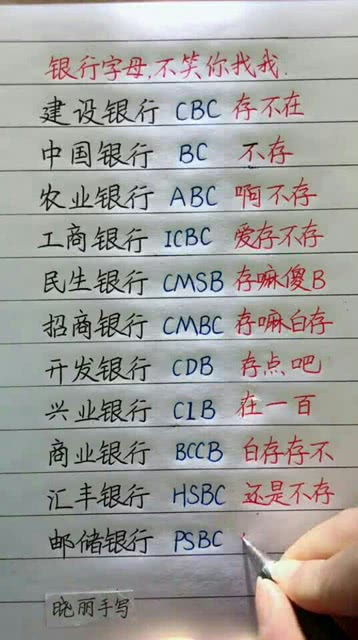 银行字母,不笑你找我.
建设银行 CBC 存不在
中国银行 BC 不存
农业银行 ABC 啊不存
工商银行 ICBC 爱存不存
民生银行 CMSB 存嘛傻B
招商银行 CMBC 存嘛白存
开发银行 CDB 存点吧
兴业银行 CIB 在一百
商业银行 BCCB 白存存不
汇丰银行 HSBC 还是不存
邮储银行 PSBC
晓丽手写